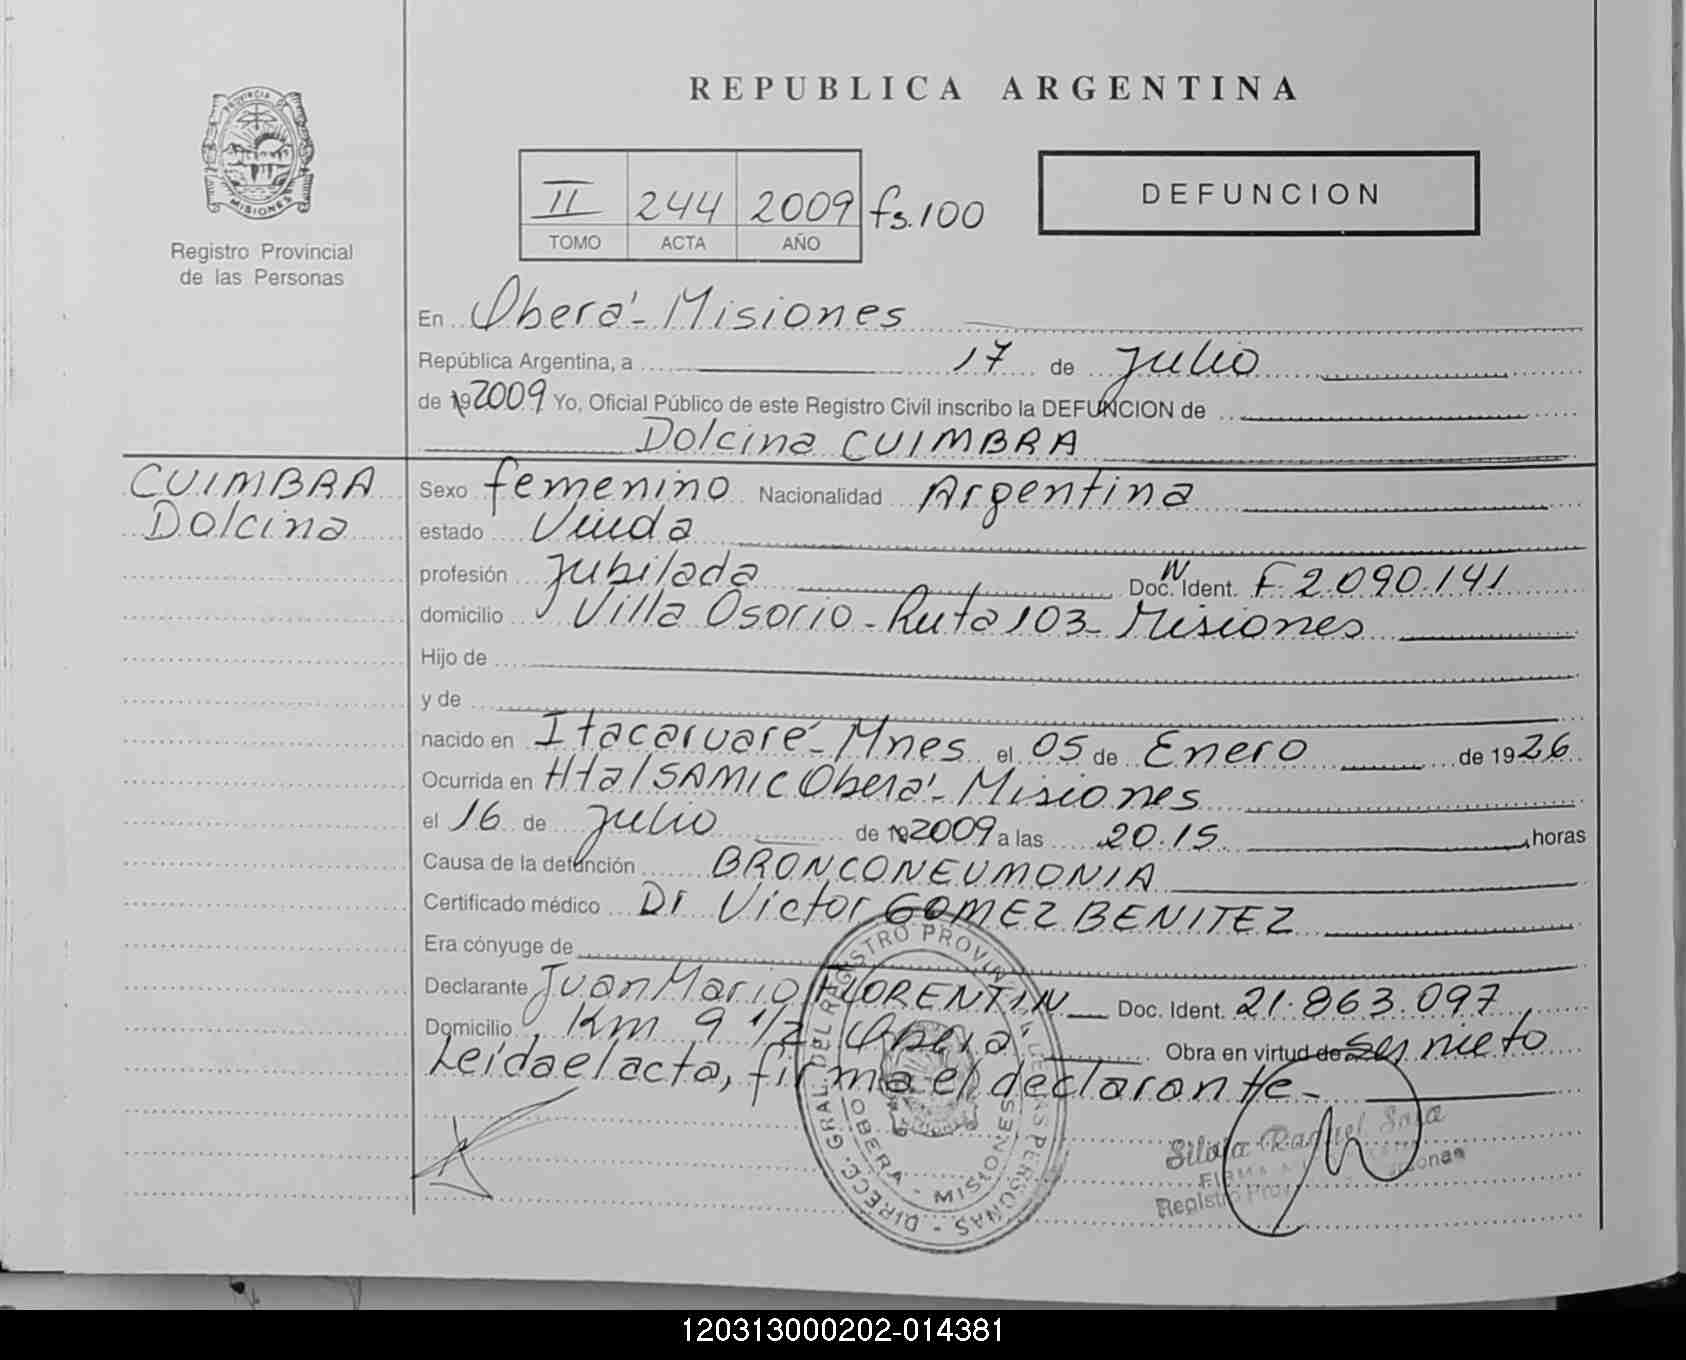 PROVINCIA DE
MISIONES
Registro Provincial
de las Personas
REPUBLICA ARGENTINA
II 244 2009 fs.100
TOMO ACTA AÑO
DEFUNCION
En Oberá - Misiones
República Argentina, a 17 de Julio
de 19 2009 Yo, Oficial Público de este Registro Civil inscribo la DEFUNCION de
Dolcina CUIMBRA
CUIMBRA
Dolcina
Sexo femenino Nacionalidad Argentina
estado Viuda
profesión Jubilada Doc. N Ident. F 2.090.141
domicilio Villa Osorio - Ruta 103 - Misiones
Hijo de
y de
nacido en Itacaruaré - Mnes el 05 de Enero de 1926
Ocurrida en Htal SAMIC Oberá - Misiones
el 16 de Julio de 19 2009 a las 20.15 horas
Causa de la defunción BRONCONEUMONIA
Certificado médico Dr Victor GOMEZ BENITEZ
Era cónyuge de
Declarante Juan Mario FLORENTIN Doc. Ident. 21.863.097
Domicilio Km 9 1/2 Oberá Obra en virtud de ser nieto
Leída el acta, firma el declarante -
DIRECC. GRAL. DEL REGISTRO PROVINCIAL DE LAS PERSONAS -
OBERA - MISIONES
Silvia Raquel Sosa
FIRMA
Registro Prov
120313000202-014381